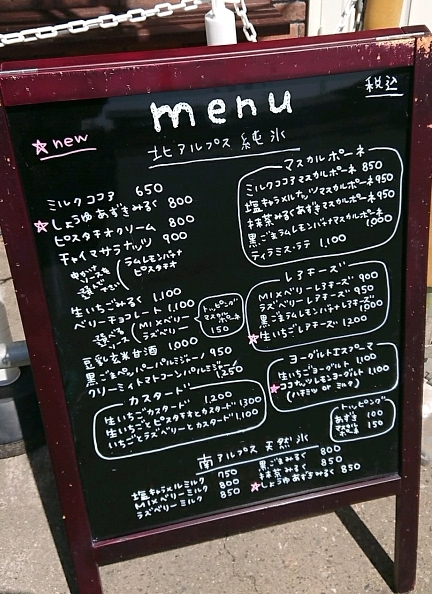 menu
税込
☆new
北アルプス 純氷
ミルクココア 650
☆しょうゆあずきみるく 800
ピスタチオクリーム 800
チャイマサラナッツ 900
選べる
ソース
ラムレモンバナナ
ピスタチオ
生いちごみるく 1,100
ベリーチョコレート 1,100
選べる
ソース
MIXベリー
ラズベリー
トッピング
マスカルポーネ
150
豆乳玄米甘酒 1,000
黒ごまペッパーパルミジャーノ 950
クリーミィトマトコーンパルミジャーノ 1,250
カスタード
生いちごカスタード 1200
生いちごとピスタチオとカスタード 1300
いちごとラズベリーとカスタード 1,100
マスカルポーネ
ミルクココアマスカルポーネ 850
塩キャラメルナッツマスカルポーネ 950
抹茶みるくあずきマスカルポーネ 950
黒ごまラムレモンバナナマスカルポーネ 1,000
ティラミス・ラテ 1,100
レアチーズ
MIXベリーレアチーズ 900
ラズベリーレアチーズ 950
黒ごまラムレモンバナナレアチーズ 1,000
☆生いちごレアチーズ 1200
ヨーグルトエスプーマ
生いちごヨーグルト 1,100
☆ココナッツレモンヨーグルト 1,100
(ハチミツ or ミルク)
トッピング
あずき 100
マスカルポーネ 150
南アルプス 天然氷
塩キャラメルミルク 750
MIXベリーミルク 800
ラズベリーミルク 850
黒ごまみるく 800
抹茶みるく 850
☆しょうゆあずきみるく 850